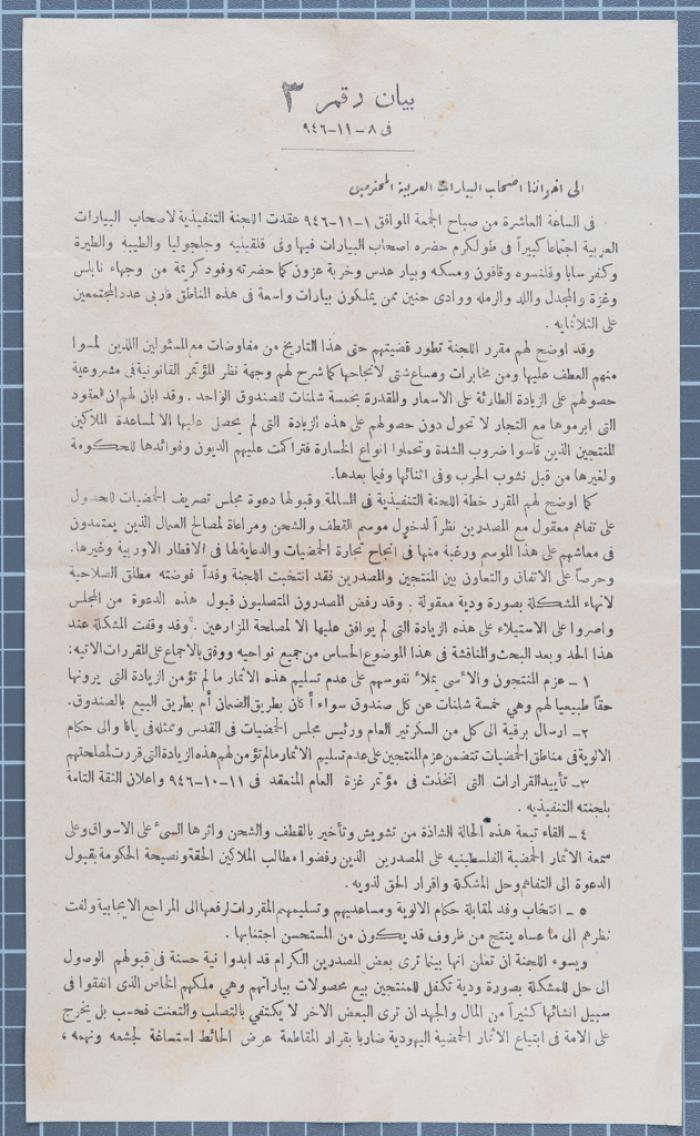 بيان رقم ٣
فى ٨-١١-٩٤٦
الى اخواننا اصحاب البيارات العربية المحترمين
فى الساعة العاشرة من صباح الجمعة الموافق ١-١١-٩٤٦ عقدت اللجنة التنفيذية لاصحاب البيارات
العربية اجتماعا كبيراً فى طولكرم حضره اصحاب البيارات فيها وفى قلقيليه وجلجوليا والطيبة والطيرة
وكفر سابا وقلنسوه وقاقون ومسكه وبيار عدس وخربة عزون كما حضرته وفود كريمة من وجهاء نابلس
وغزة والمجدل واللد والرمله ووادى حنين ممن يملكون بيارات واسعة فى هذه المناطق فاربى عدد المجتمعين
على الثلاثمايه .
وقد اوضح لهم مقرر اللجنة تطور قضيتهم حتى هذا التاريخ من مفاوضات مع المسئولين اللذين لمسوا
منهم العطف عليها ومن مخابرات ومساع شتى لانجاحها كما شرح لهم وجهة نظر المؤتمر القانونية فى مشروعية
حصولهم على الزيادة الطارئة على الاسعار والمقدرة بخمسة شلنات للصندوق الواحد . وقد ابان لهم ان العقود
التى ابرموها مع التجار لا تحول دون حصولهم على هذه الزيادة التى لم يحصل عليها الا لمساعدة الملاكين
المنتجين الذين قاسوا ضروب الشدة وتحملوا انواع الخسارة فتراكمت عليهم الديون وفوائدها للحكومة
ولغيرها من قبل نشوب الحرب وفى اثنائها وفيما بعدها.
كما اوضح لهم المقرر خطة اللجنة التنفيذية فى المسالمة وقبولها دعوة مجلس تصريف الحمضيات للحصول
على تفاهم معقول مع المصدرين نظراً لدخول موسم القطف والشحن ومراعاة لمصالح العمال الذين يعتمدون
فى معاشهم على هذا الموسم ورغبة منها فى انجاح تجارة الحمضيات والدعاية لها فى الاقطار الاوربية وغيرها.
وحرصاً على الاتفاق والتعاون بين المنتجين والمصدرين فقد انتخبت اللجنة وفداً فوضته مطلق الصلاحية
لانهاء المشكلة بصورة ودية معقولة . وقد رفض المصدرون المتصلبون قبول هذه الدعوة من المجلس
واصروا على الاستيلاء على هذه الزيادة التى لم يوافق عليها الا لمصلحة المزارعين . وقد وقفت المشكلة عند
هذا الحد وبعد البحث والمناقشة فى هذا الموضوع الحساس من جميع نواحيه ووفق بالاجماع على المقررات الاتيه:
١ - عزم المنتجون والأسى بملاء نفوسهم على عدم تسليم هذه الاثمار ما لم تؤمن الزيادة التى يرونها
حقاً طبيعيا لهم وهي خمسة شلنات عن كل صندوق سواء أكان بطريق الضمان أم بطريق البيع بالصندوق.
٢ - ارسال برقية الى كل من السكرتير العام ورئيس مجلس الحمضيات فى القدس وممثله فى يافا والى حكام
الالوية فى مناطق الحمضيات تتضمن عزم المنتجين على عدم تسليم الاثمار مالم تؤمن لهم هذه الزيادة التى قررت لمصلحتهم
٣ - تأييد القرارات التى اتخذت فى مؤتمر غزة العام المنعقد فى ١١-١٠-٩٤٦ واعلان الثقة التامة
بلجنته التنفيذيه .
٤ - القاء تبعة هذه الحالة الشاذة من تشويش وتأخير بالقطف والشحن واثرها السيء على الاسواق وعلى
سمعة الاثمار الحمضية الفلسطينيه على المصدرين الذين رفضوا مطالب الملاكين الحقة ونصيحة الحكومة بقبول
الدعوة الى التفاهم وحل المشكلة واقرار الحق لذويه .
٥ - انتخاب وفد لمقابلة حكام الالوية ومساعديهم وتسليمهم المقررات لرفعها الى المراجع الايجابية ولفت
نظرهم الى ما عساه ينتج من ظروف قد يكون من المستحسن اجتنابها .
ويسوء اللجنة ان تعلن انها بينما ترى بعض المصدرين الكرام قد ابدوا نية حسنة فى قبولهم الوصول
الى حل للمشكلة بصورة ودية تكفل للمنتجين بيع محصولات بياراتهم وهي ملكهم الخاص الذى انفقوا فى
سبيل انشائها كثيراً من المال والجهد ان ترى البعض الاخر لا يكتفي بالتصلب والتعنت فحسب بل يخرج
على الامة فى ابتياع الاثمار الحمضية اليهودية ضاربا بقرار المقاطعة عرض الحائط استساغة لجشعه ونهمه ،